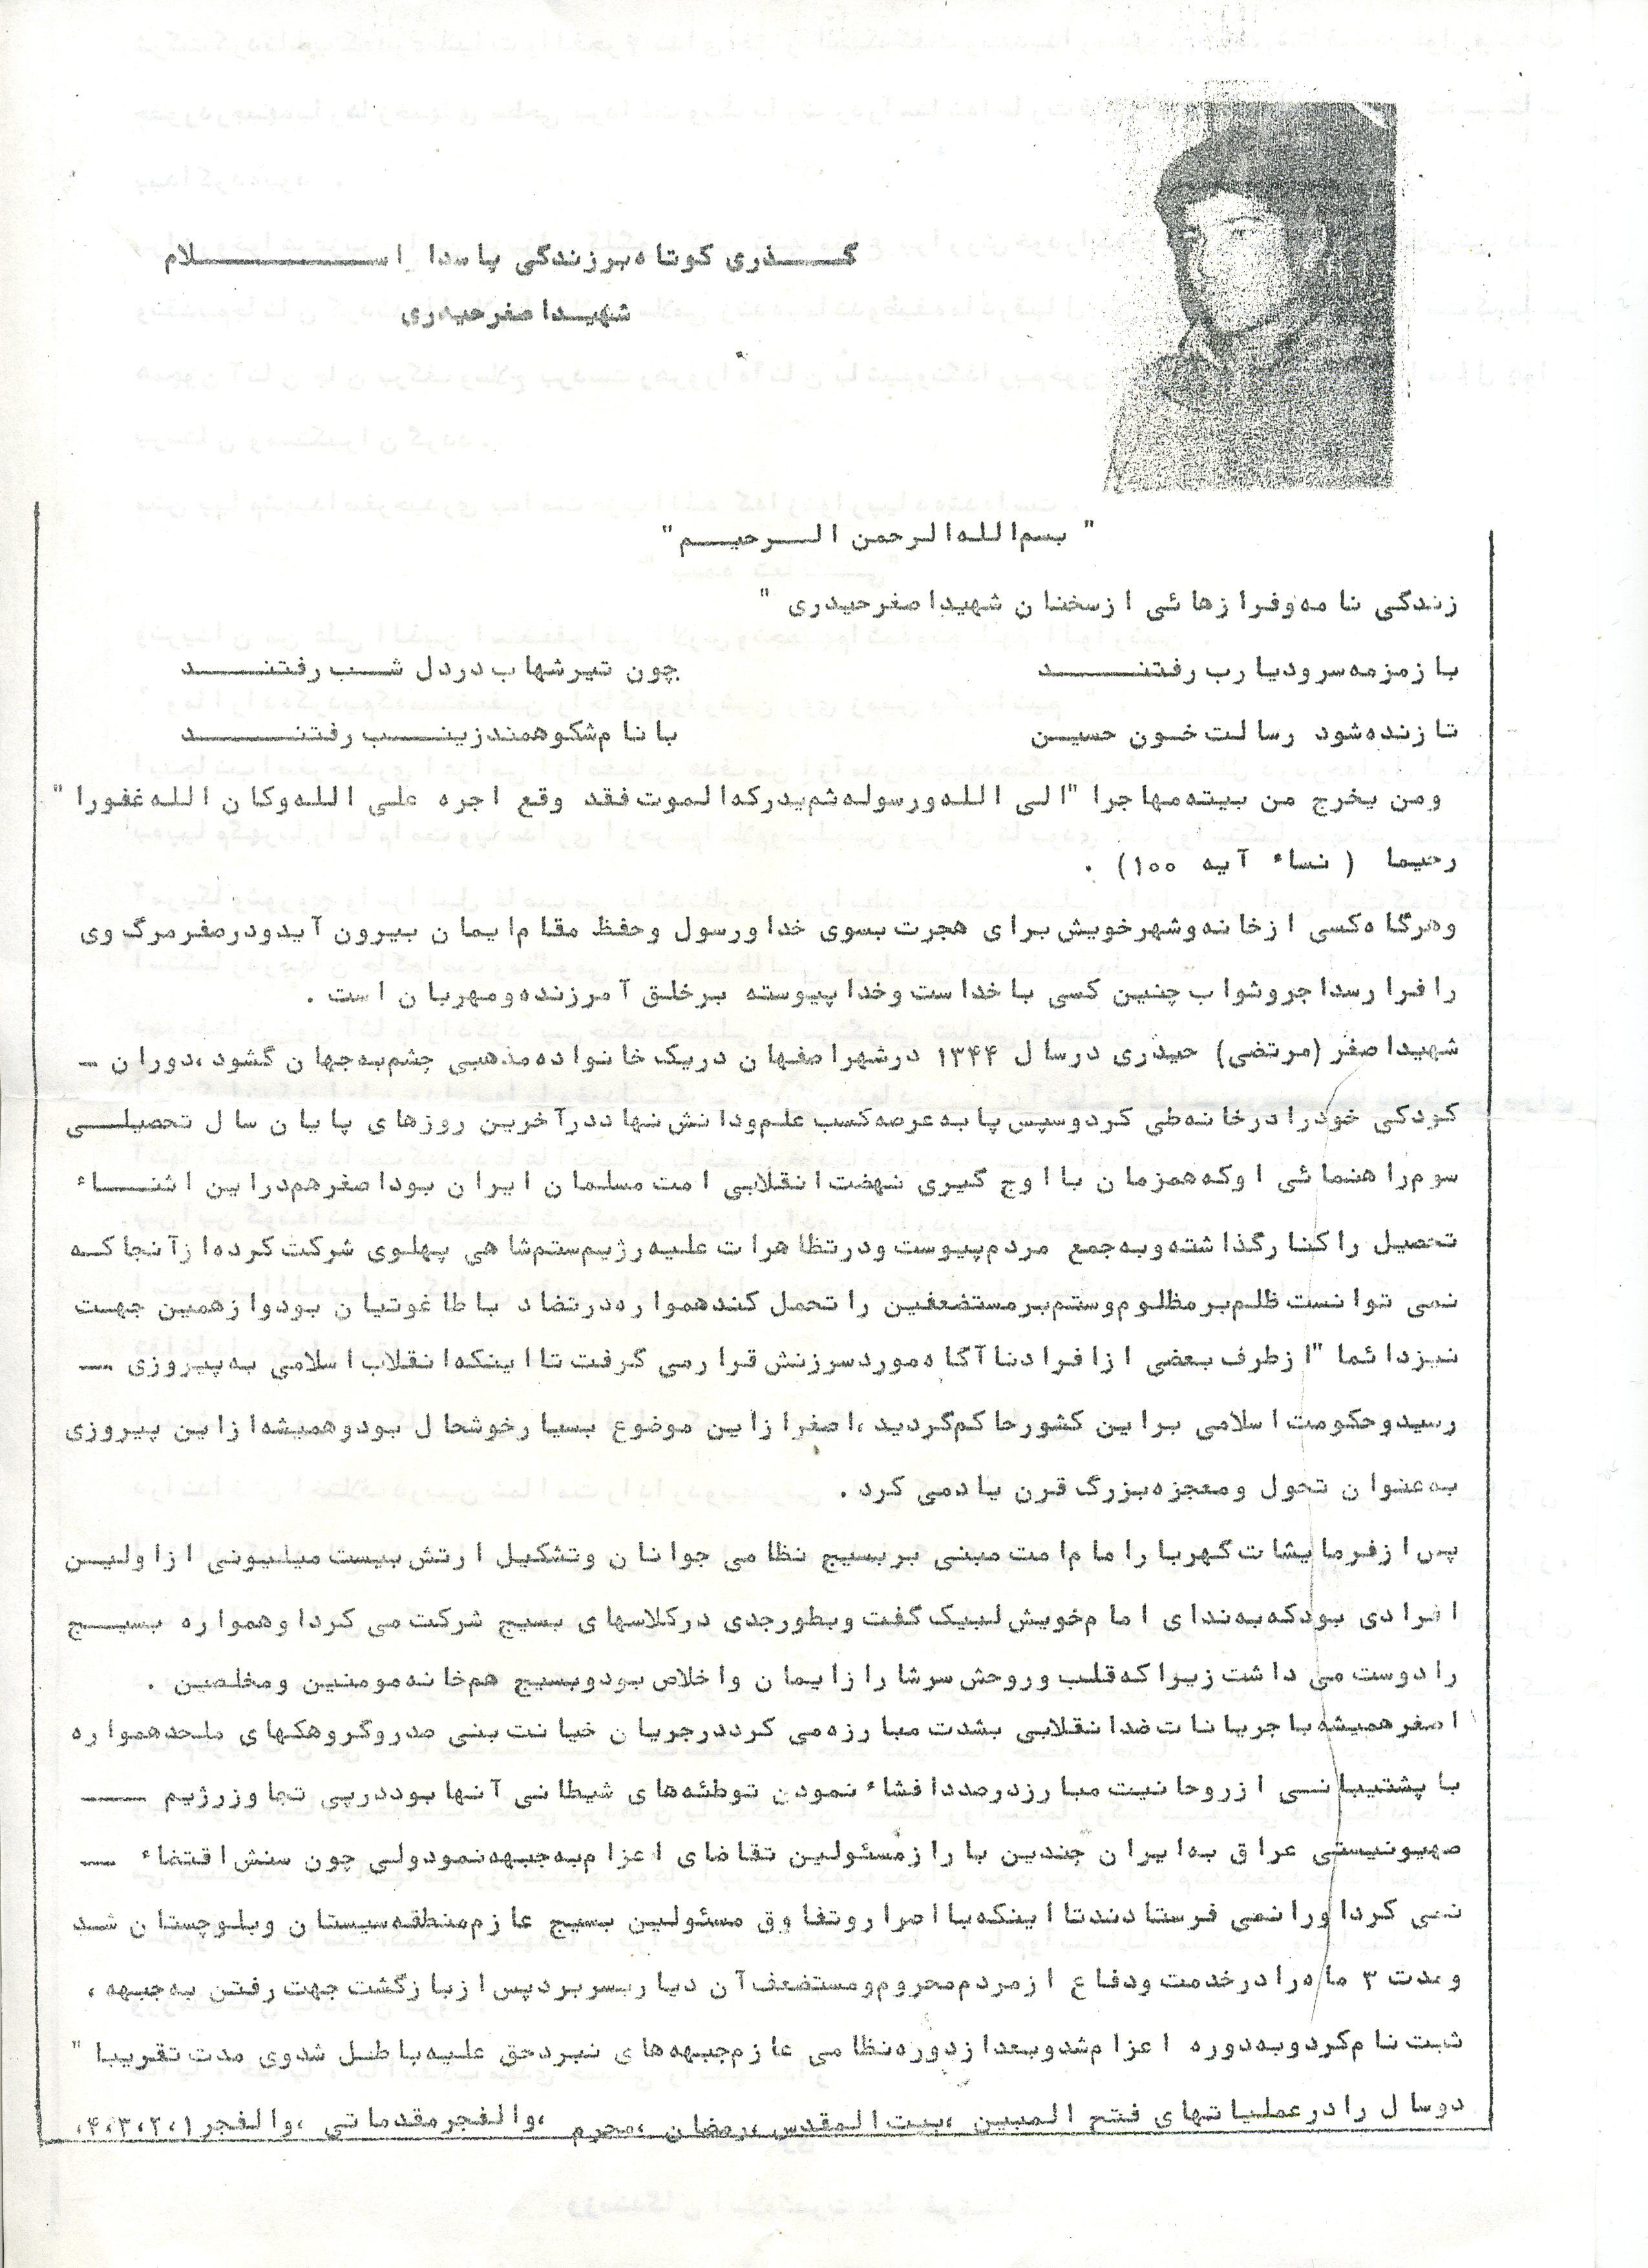 گذری کوتاه برزندگی پاسدار اسلام
شهید اصغر حیدری
" بسم الله الرحمن الرحیم "
زندگی نامه وفرازهائی ازسخنان شهید اصغرحیدری "
با زمزمه سرود یارب رفتند چون تیرشهاب دردل شب رفتند
تا زنده شود رسالت خون حسین با نام شکوهمند زینب رفتند
ومن یخرج من بیته مهاجرا "الی الله ورسوله ثم یدرکه الموت فقد وقع اجره علی الله وکان الله غفورا "
رحیما ( نساء آیه ۱۰۰) .
وهرگاه کسی ازخانه وشهرخویش برای هجرت بسوی خدا ورسول وحفظ مقام ایمان بیرون آید ودرصفرمرگ وی
را فرا رسد اجروثواب چنین کسی با خداست وخدا پیوسته برخلق آمرزنده ومهربان است .
شهید اصغر (مرتضی) حیدری درسال ۱۳۴۴ درشهراصفهان دریک خانواده مذهبی چشم به جهان گشود ،دوران -
کودکی خودرا درخانه طی کرد وسپس پا به عرصه کسب علم ودانش نهاد درآخرین روزهای پایان سال تحصیلی
سوم راهنمائی اوکه همزمان با اوج گیری نهضت انقلابی امت مسلمان ایران بود اصغرهم دراین اثناء
تحصیل را کنارگذاشته وبه جمع مردم پیوست ودرتظاهرات علیه رژیم ستم شاهی پهلوی شرکت کرده ازآنجا که
نمی توانست ظلم برمظلوم وستم برمستضعفین را تحمل کند همواره درتضاد با طاغوتیان بود وازهمین جهت
نیزدائما "ازطرف بعضی ازافراد ناآگاه مورد سرزنش قرارمی گرفت تا اینکه انقلاب اسلامی به پیروزی -
رسید وحکومت اسلامی براین کشورحاکم گردید ،اصغرازاین موضوع بسیارخوشحال بود وهمیشه ازاین پیروزی
به عنوان تحول ومعجزه بزرگ قرن یاد می کرد .
پس ازفرمایشات گهربار امام امت مبنی بربسیج نظامی جوانان وتشکیل ارتش بیست میلیونی ازاولین
افرادی بود که به ندای امام خویش لبیک گفت وبطورجدی درکلاسهای بسیج شرکت می کرد او همواره بسیج
را دوست می داشت زیرا که قلب وروحش سرشارازایمان واخلاص بود وبسیج هم خانه مومنین ومخلصین .
اصغرهمیشه با جریانات ضد انقلابی بشدت مبارزه می کرد درجریان خیانت بنی صدروگروهکهای ملحد همواره
با پشتیبانی ازروحانیت مبارزدرصدد افشاء نمودن توطئه های شیطانی آنها بود درپی تجاوزرژیم -
صهیونیستی عراق به ایران چندین بارازمسئولین تقاضای اعزام به جبهه نمود ولی چون سنش اقتضاء -
نمی کرد اورا نمی فرستادند تا اینکه با اصراروتفاوق مسئولین بسیج عازم منطقه سیستان وبلوچستان شد
ومدت ۳ ماه را درخدمت ودفاع ازمردم محروم ومستضعف آن دیاربسربرد پس ازبازگشت جهت رفتن به جبهه ،
ثبت نام کرد وبه دوره اعزام شد وبعد ازدوره نظامی عازم جبهه های نبرد حق علیه باطل شد وی مدت تقریبا "
دوسال را درعملیاتهای فتح المبین ،بیت المقدس ،رمضان ،محرم ،والفجرمقدماتی ،والفجر۱،۲،۳،۴،